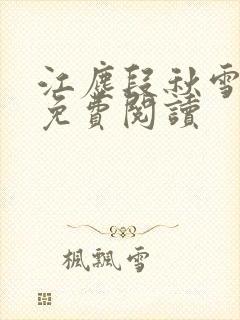 江塵段秋雪
免費閱讀
楓飄雪